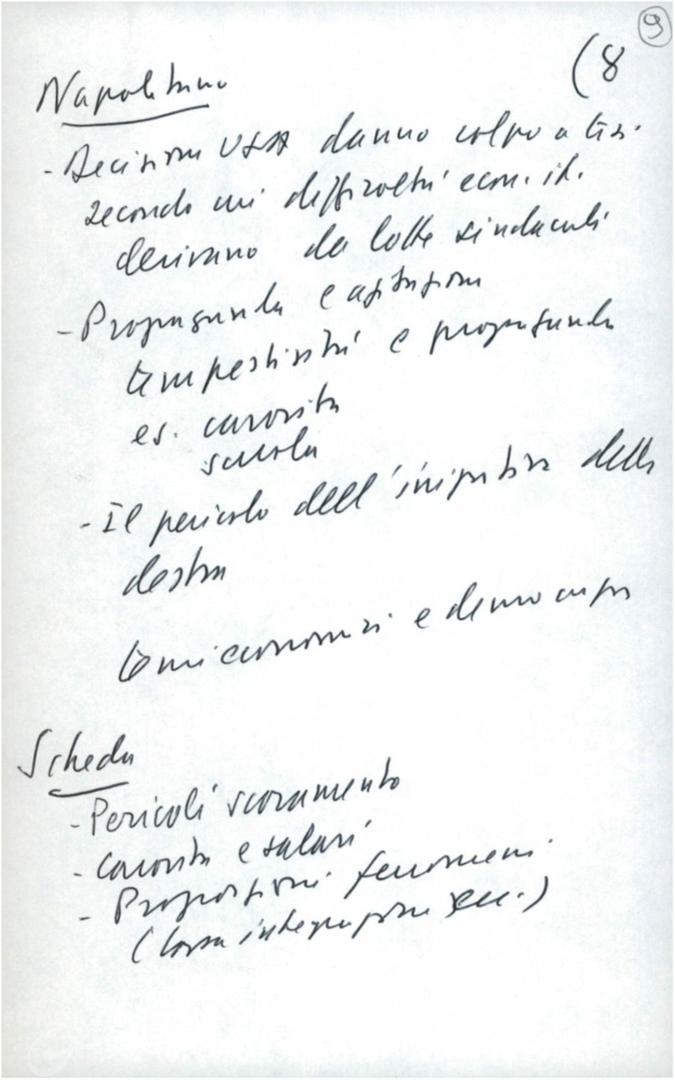 9
(8
Napolitano
- Decisioni USA danno colpo a tesi
secondo cui difficoltà econ. it.
derivano da lotte sindacali
- Propaganda e agitazione
tempestività e propaganda
es. carovita
scuola
- Il pericolo dell'iniziativa della
destra
temi economici e democrazia
Scheda
- Pericoli scoramento
- carovita e salari
- Proporzioni fenomeni
(Cassa integrazione ecc.)